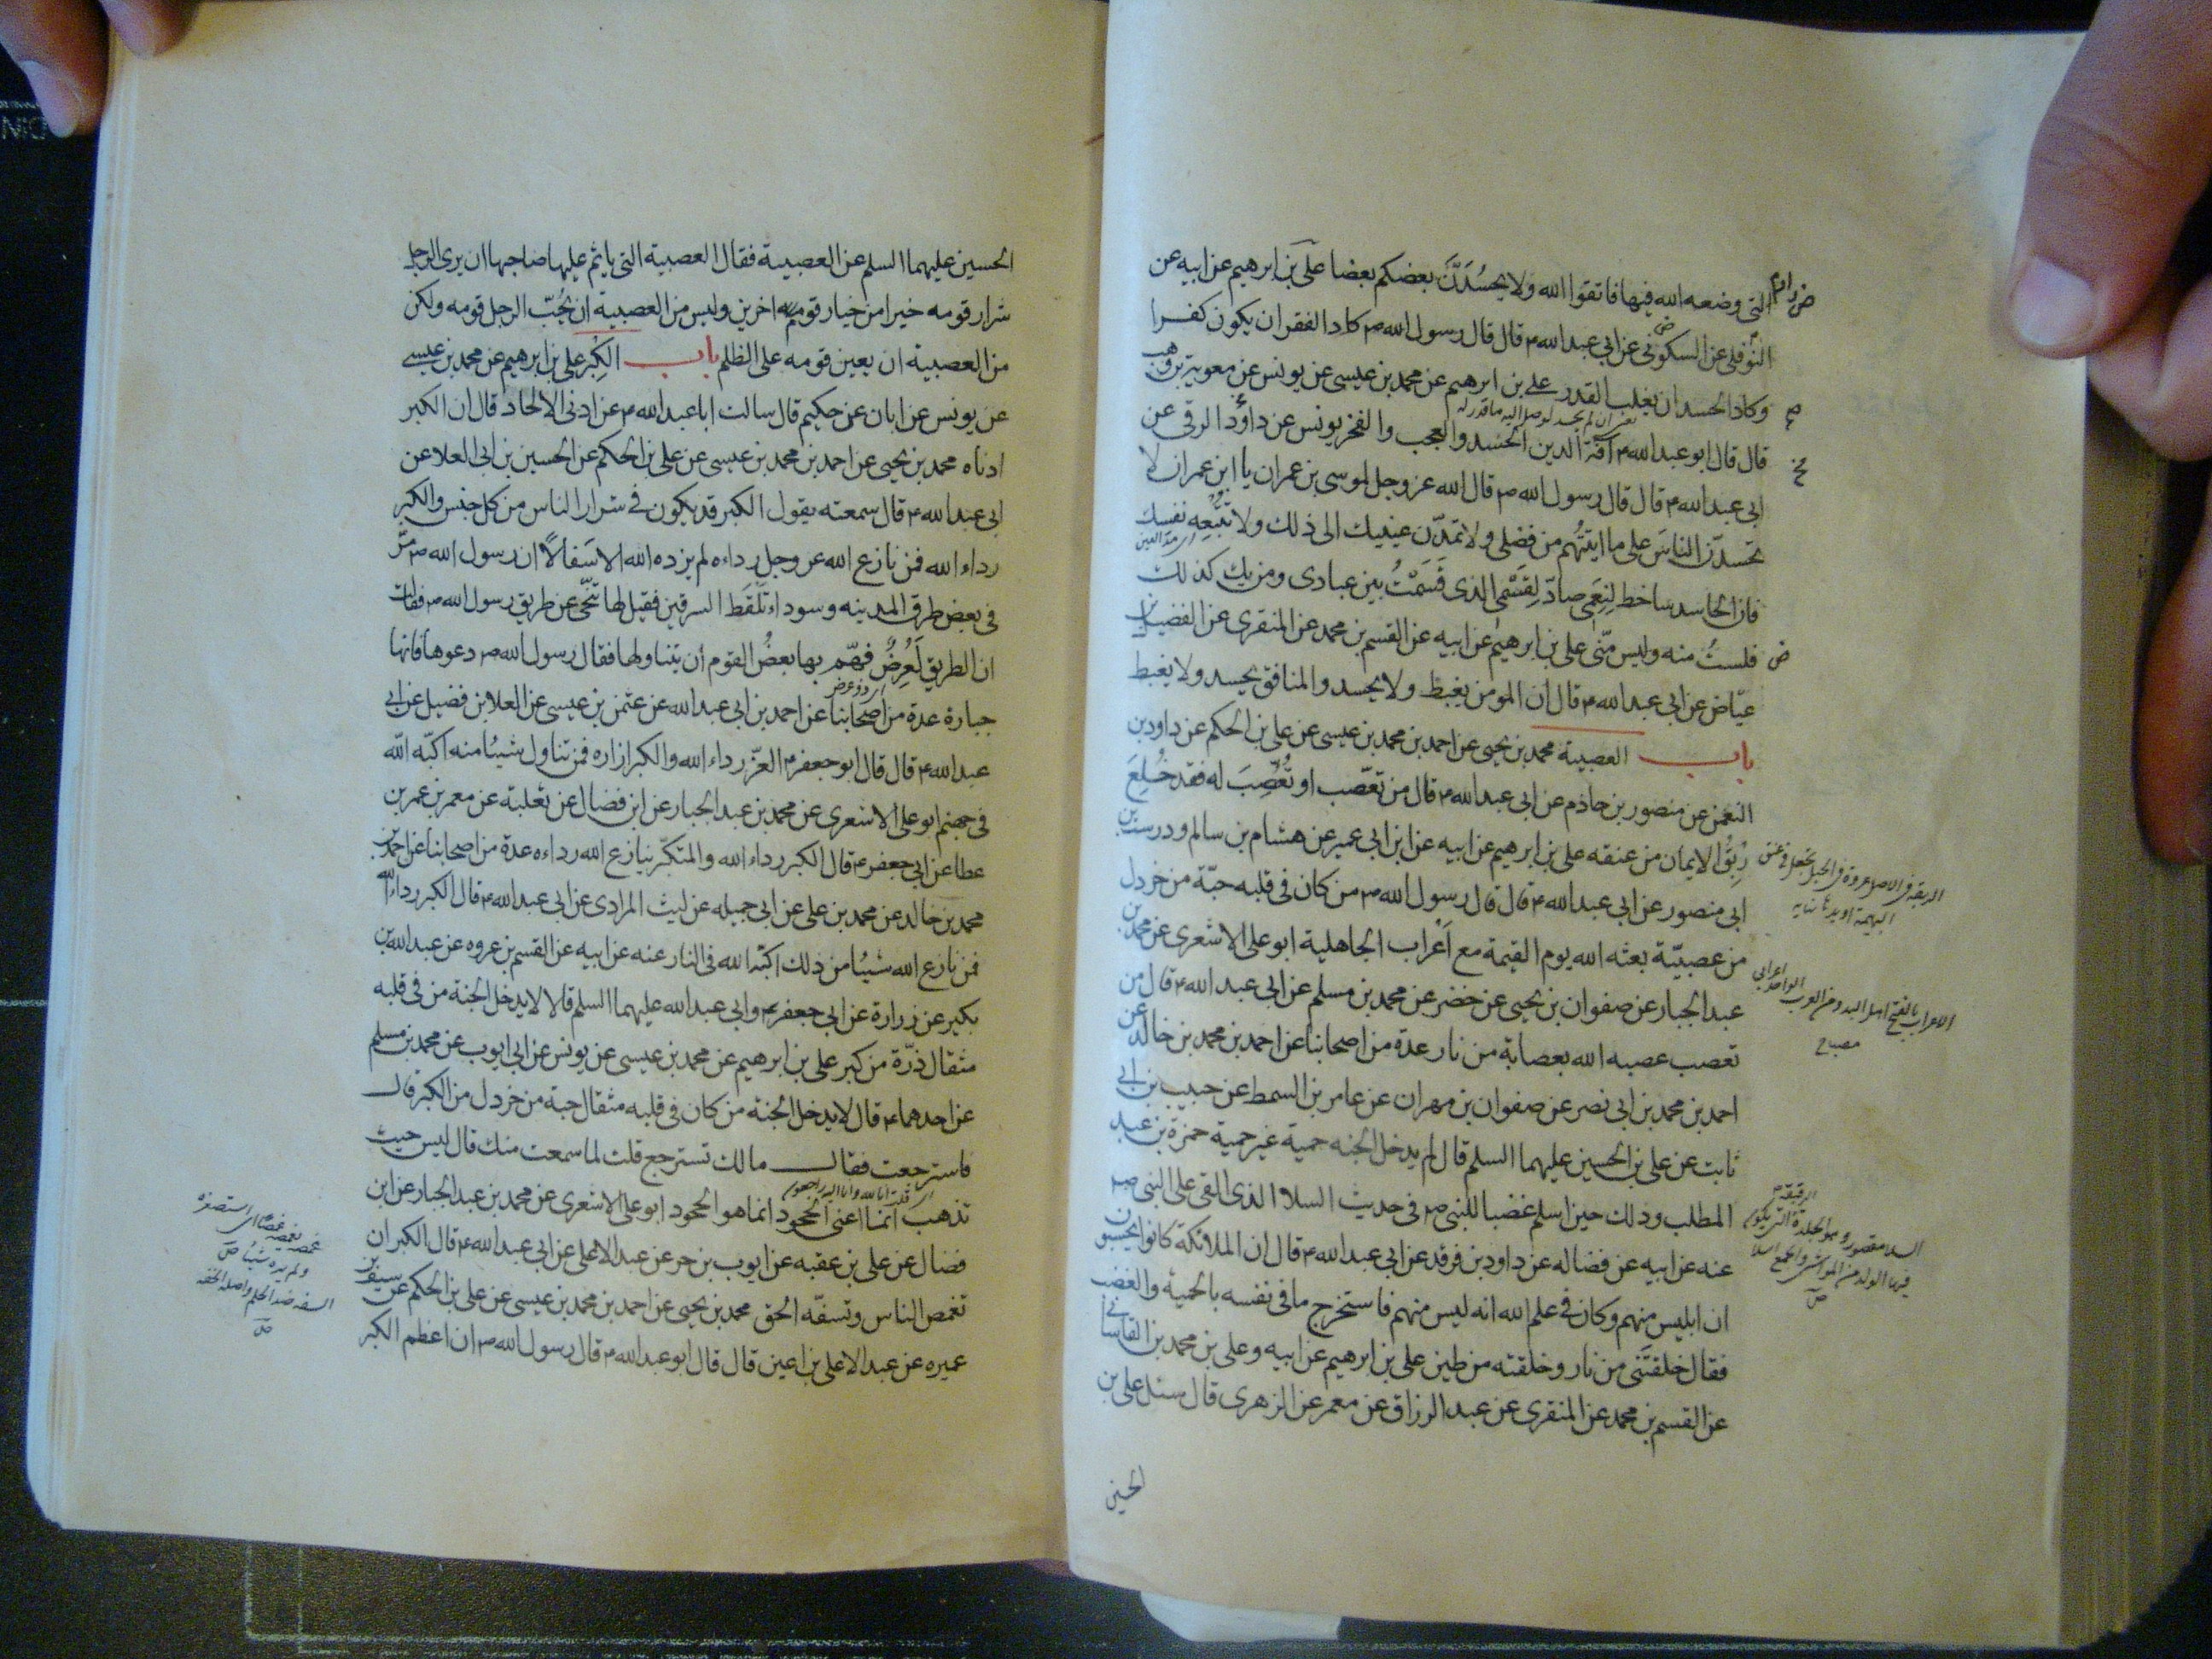 التى وضعه الله فيها فاتقوا الله ولا يحسُدَنَّ بعضكم بعضا على بن ابرهيم عن ابيه عن
النوفلى عن السكونى عن ابى عبد الله ع قال قال رسول الله ص كاد الفقر ان يكون كفرا
وكاد الحسد ان يغلب القدر على بن ابرهيم عن محمد بن عيسى عن يونس عن معوية بن وهب
قال قال ابو عبد الله ع آفة الدين الحسد والعجب والفخر يونس عن داؤد الرقى عن
ابى عبد الله ع قال قال رسول الله ص قال الله عز وجل لموسى بن عمران يا ابن عمران لا
تحسدنّ الناسَ على ما اتيتهم من فضلى ولا تمدّن عينيك الى ذلك ولا تتبعه نفسك
فان الحاسد ساخط لِنِعَمى صادّ لِقَسْمى الذى قَسَمْتُ بين عبادى ومن يك كذلك
فلستُ منه وليس منّى على بن ابرهيم عن ابيه عن القسم بن محمد عن المنقرى عن الفضيل بن
عيّاض عن ابى عبد الله ع قال ان المومن يغبط ولا يحسد والمنافق يحسد ولا يغبط
باب العصبية محمد بن يحيى عن احمد بن محمد بن عيسى عن على بن الحكم عن داود بن
النعمن عن منصور بن حازم عن ابى عبد الله ع قال من تعَصّب او تُعُصِّبَ له فقد خُلِعَ
رِبْقُ الايمان من عنقه على بن ابرهيم عن ابيه عن ابن ابى عمير عن هشام بن سالم ودرست بن
الربقة فى الاصل عروة فى الحبل تجعل فى عنق
البهيمة او يدها
ابى منصور عن ابى عبد الله ع قال قال رسول الله ص من كان فى قلبه حبّة من خردل
من عصبيّة بعثه الله يوم القيمة مع اَعْراب الجاهلية ابو على الاشعرى عن محمد بن
عبد الجبار عن صفوان بن يحيى عن خضر عن محمد بن مسلم عن ابى عبد الله ع قال من
الاعراب بالفتح اهل البدو من العرب الواحد اعرابى
مصباح
تعصب عصبه الله بعصابة من نار عدة من اصحابنا عن احمد بن محمد بن خالد عن
احمد بن محمد بن ابى نصر عن صفوان بن مهران عن عامر بن السمط عن حبيب بن ابى
ثابت عن على بن الحسين عليهما السلم قال لم يدخل الجنه حمية غير حمية حمزة بن عبد
المطلب وذلك حين اسلم غضبا للنبى ص فى حديث السلا الذى القى على النبى ص
السلا مقصور وهو الجلدة الرقيقة التى يكون
فيها الولد من المواشى والجمع اسلا
عنه عن ابيه عن فضاله عن داود بن فرقد عن ابى عبد الله ع قال ان الملائكة كانوا يحسبون
ان ابليس منهم وكان فى علم الله انه ليس منهم فاستخرج ما فى نفسه بالحمية والغضب
فقال خلقتَنى من نار وخلقته من طين على بن ابرهيم عن ابيه وعلى بن محمد بن القاسانى
عن القسم بن محمد عن المنقرى عن عبد الرزاق عن معمر عن الزهرى قال سئل على بن
الحسين
الحسين عليهما السلم عن العصبية فقال العصبية التى ياثم عليها صاحبها ان يرى الرجل
شرار قومه خيرا من خيار قوم اخرين وليس من العصبية ان يُحِبّ الرجل قومه ولكن
من العصبية ان يعين قومه على الظلم باب الكِبر على بن ابرهيم عن محمد بن عيسى
عن يونس عن ابان عن حكيم قال سالت ابا عبد الله ع عن ادنى الالحاد قال ان الكبر
ادناه محمد بن يحيى عن احمد بن محمد بن عيسى عن على بن الحكم عن الحسين بن ابى العلا عن
ابى عبد الله ع قال سمعته يقول الكبر قد يكون فى شرار الناس من كل جنس والكبر
رداء الله فمن نازع الله عز وجل رداءه لم يزده الله الا سَفالًا ان رسول الله ص مرّ
فى بعض طرق المدينه وسوداء تلقط السرقين فقيل لها تنحّى عن طريق رسول الله ص فقالت
ان الطريق لَمُعرِضٌ فهمّ بها بعضُ القوم أن يتناولها فقال رسول الله ص دعوها فانها
جبارة عدة من اصحابنا عن احمد بن ابى عبد الله عن عثمن بن عيسى عن العلا بن فضيل عن ابى
عبد الله ع قال قال ابو جعفر ع العزّ رداء الله والكبر ازاره فمن تناول شيئا منه اكبّه الله
فى جهنم ابو على الاشعرى عن محمد بن عبد الجبار عن ابن فضال عن ثعلبة عن معمر بن عمر بن
عطا عن ابى جعفر ع قال الكبر رداء الله والمتكبّر ينازع الله رداءه عدة من اصحابنا عن احمد بن
محمد بن خالد عن محمد بن على عن ابى جميله عن ليث المرادى عن ابى عبد الله ع قال الكبر رداء الله
فمن نازع الله شيئا من ذلك اكبّه الله فى النار عنه عن ابيه عن القسم بن عروه عن عبد الله بن
بكير عن زرارة عن ابى جعفر وابى عبد الله عليهما السلم قالا لا يدخل الجنة من فى قلبه
مثقال ذرّة من كبر على بن ابرهيم عن محمد بن عيسى عن يونس عن ابى ايوب عن محمد بن مسلم
عن احدهما ع قال لا يدخل الجنة من كان فى قلبه مثقال حبة من خردل من الكبر قال
فاسترجعت فقال مالك تسترجع قلت لما سمعت منك قال ليس حيث
اى قلت انا لله وانا اليه راجعون
تذهب انما اعنى الجحود انما هو الجحود ابو على الاشعرى عن محمد بن عبد الجبار عن ابن
فضال عن على بن عقبه عن ايوب بن حر عن عبد الاعلى عن ابى عبد الله ع قال الكبر ان
تغمص الناس وتسفّه الحق محمد بن يحيى عن احمد بن محمد بن عيسى عن على بن الحكم عن سيف بن
غمصه يغمصه غمصًا اى استصغره
ولم يره شيئا ص
السفه ضد الحلم واصله الخفة
ص
عميره عن عبد الاعلى بن اعين قال قال ابو عبد الله ع قال رسول الله ص ان اعظم الكبر